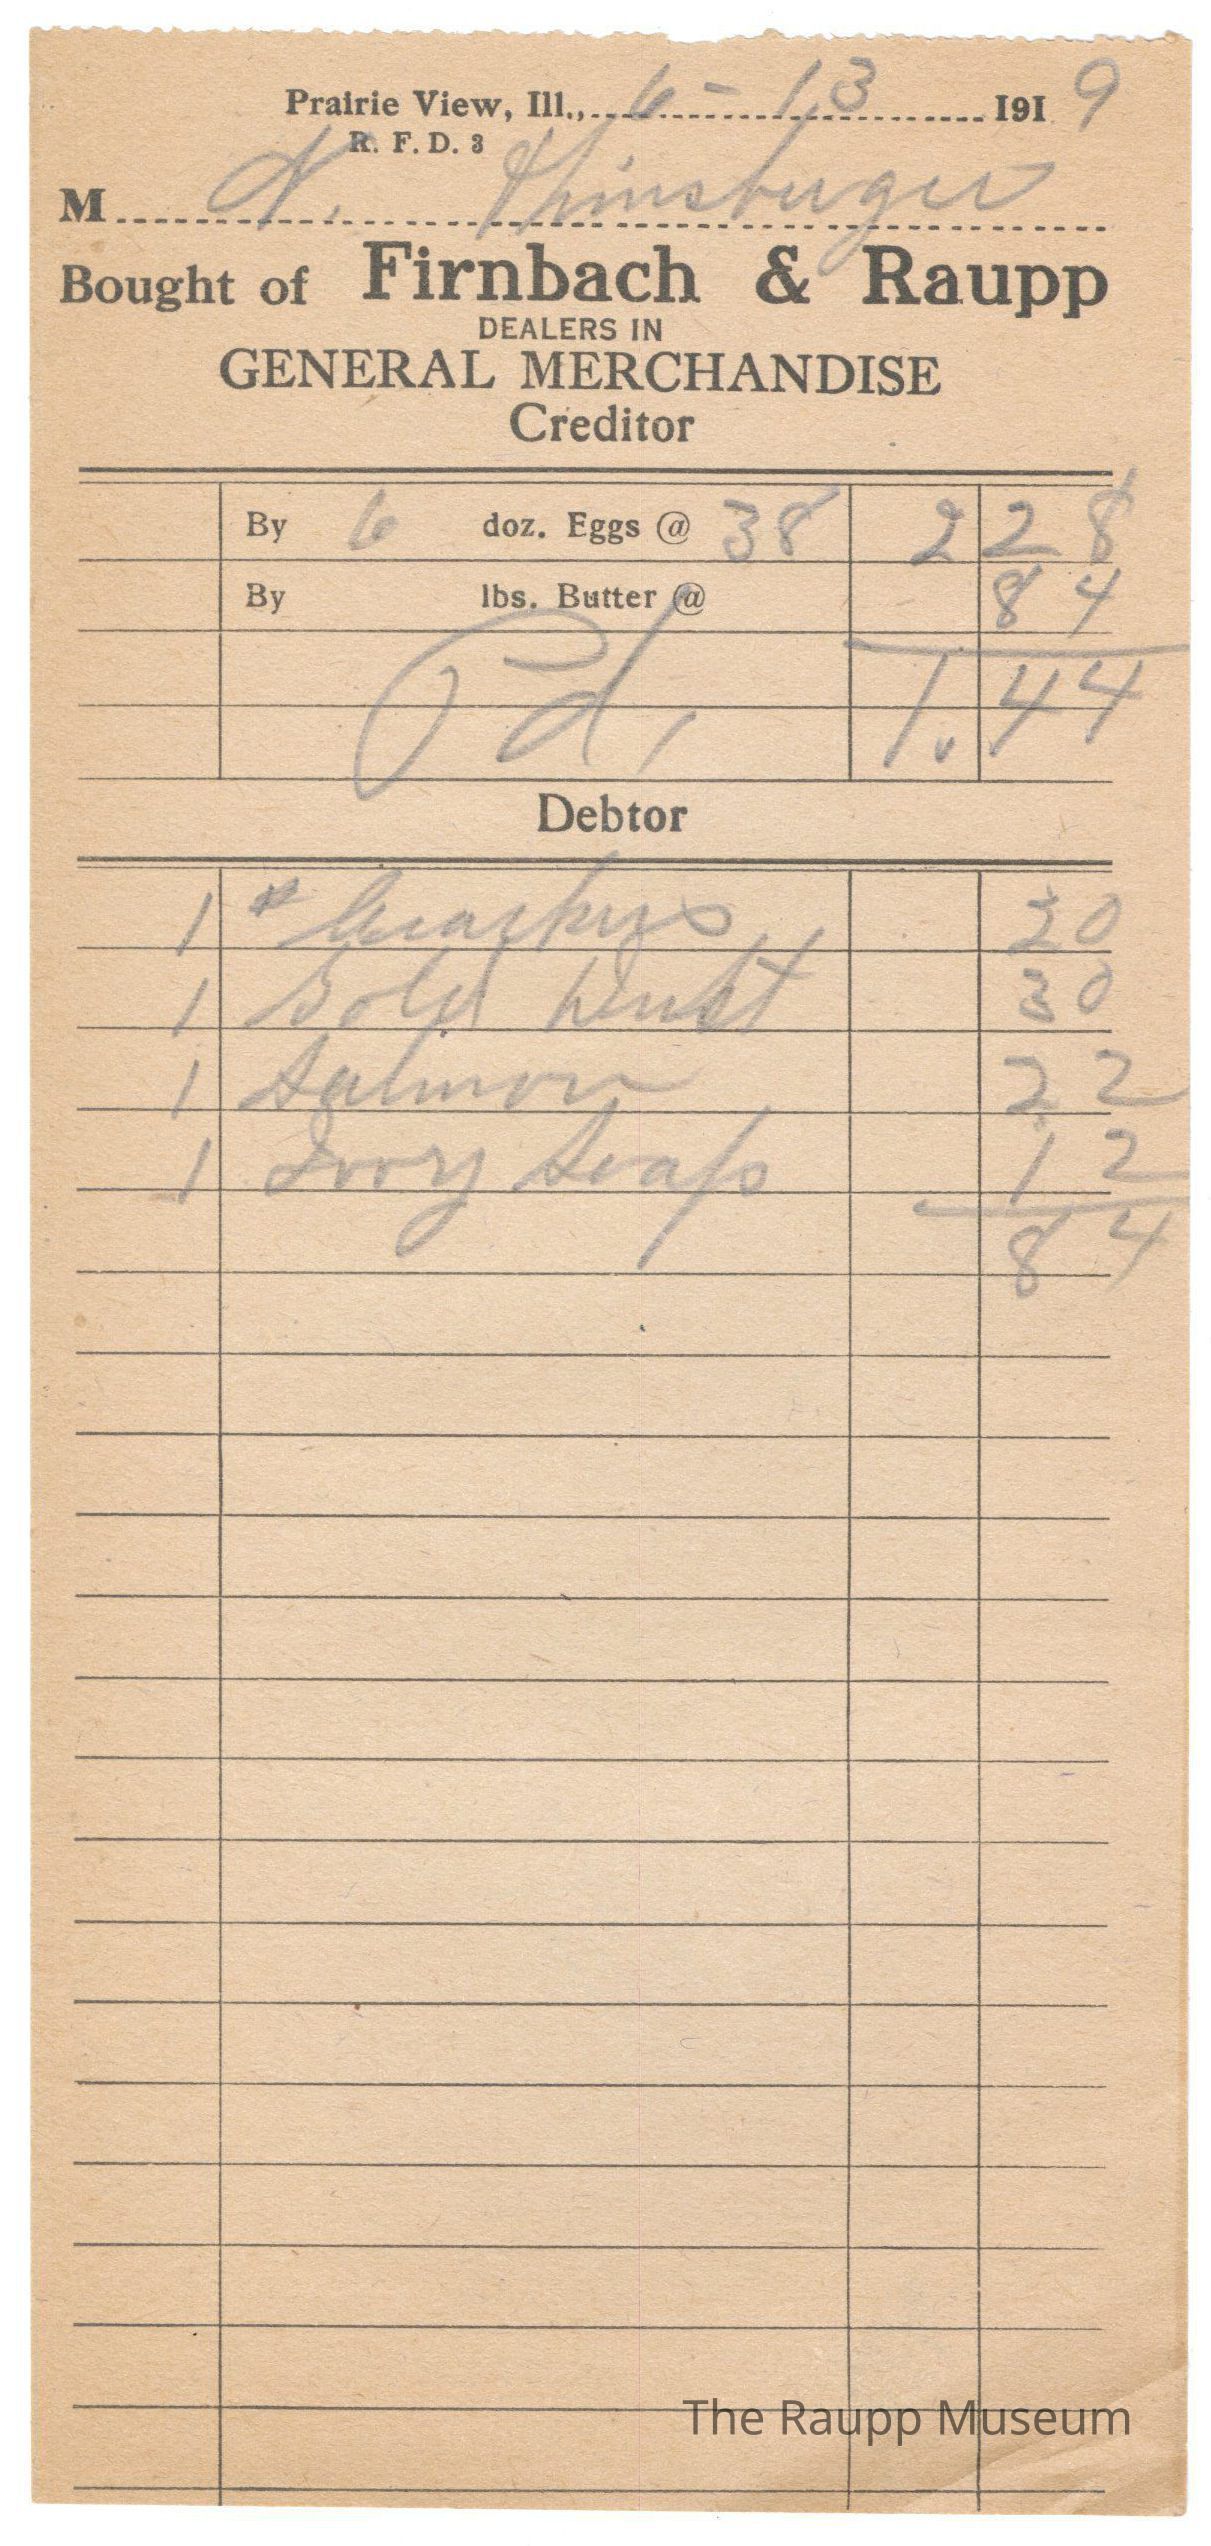 Prairie View, Ill., 6-13 1919
R. F. D. 3
M N.
Bought of Firnbach & Raupp
DEALERS IN
GENERAL MERCHANDISE
Creditor
By 6 doz. Eggs @ 38 2 28
By lbs. Butter @ 84
Pd, 1.44
Debtor
1 # Crackers 20
1 Gold Dust 30
1 Salmon 22
1 Ivory Soap 12
84
The Raupp Museum